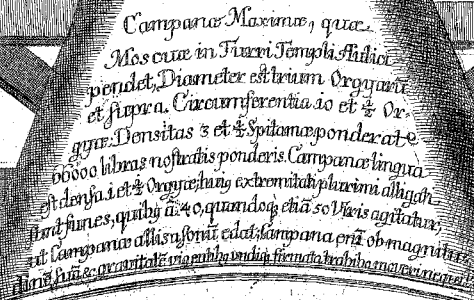 Campanæ Maximæ, quæ
Moscuæ in Turri Templi Aulici
pendet, Diameter est trium Orgyarũ
et supra. Circumferentia 10 et ½ Or-
gyæ: Densitas 3 et ½ Spitamæ: ponderat
66000 libras nostratis ponderis. Campanæ lingua
est densa 1 et ½ Orgyæ, huiꝰ extremitati plurimi alligati
sunt funes, quibꝰ à 40, quandoq, etiã 50 Viris agitatur,
ut Campanæ allisa sonũ edat, Campana